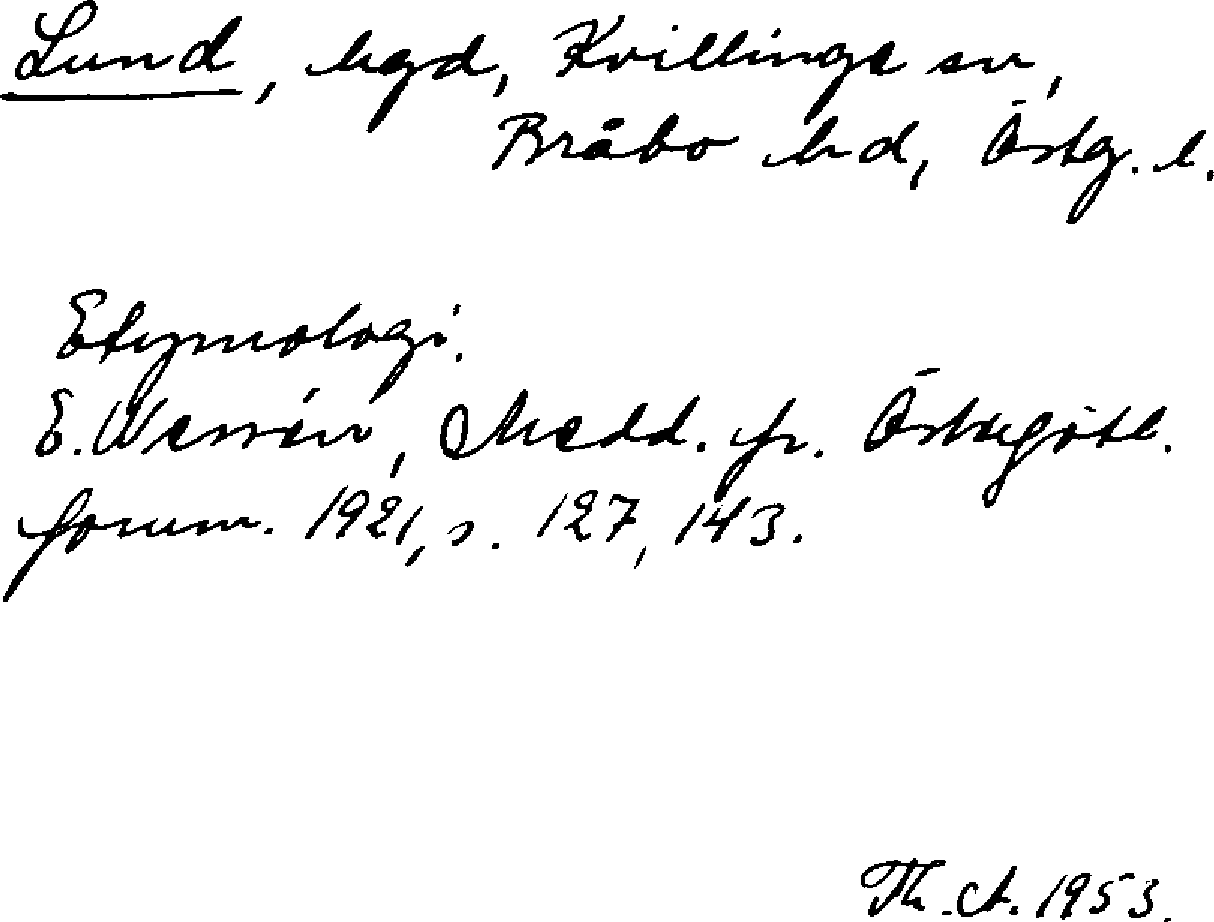 Lund, hgd, Kvillinge sn,
Bråbo hd, Östg. l.
Etymologi.
E. Wessén, Medd. fr. Östergötl.
fornm. 1921, s. 127, 143.
Th. A. 1953.